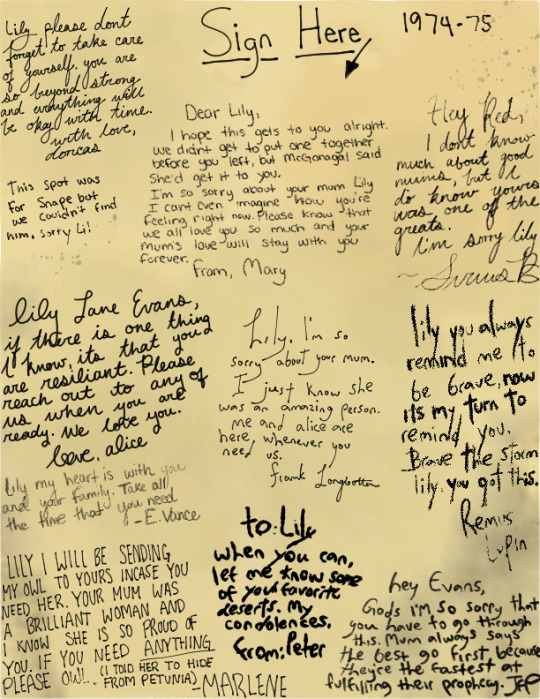 Sign Here
1974-75
Lily please dont
forget to take care
of yourself. you are
so beyond strong
and everything will
be okay with time.
with love,
dorcas
Dear Lily,
I hope this gets to you alright.
we didnt get to put one together
before you left, but McGonagal said
She'd get it to you.
I'm so sorry about your mum Lily
I cant even imagine how you're
feeling right now. Please know that
we all love you so much and your
mum's love will stay with you
forever.
From, Mary
Hey Red,
I don't know
much about good
mums, but I
do know yours
was one of the
greats.
I'm sorry lily
This spot was
for Snape but
we couldn't find
him. sorry Lil
lily Jane Evans,
if there is one thing
I know, its that you
are resiliant. Please
reach out to any of
us when you are
ready. We love you.
Love, alice
Lily. I'm so
sorry about your mum.
I just know she
was an amazing person.
me and alice are
here, whenever you
need us.
Frank Longbottom
lily you always
remind me to
be brave, now
its my turn to
remind you.
Brave the storm
lily. you got this.
Remus
Lupin
Lily my heart is with you
and your family. Take all
the time that you need
-E. Vance
LILY I WILL BE SENDING
MY OWL TO YOURS INCASE YOU
NEED HER. YOUR MUM WAS
A BRILLIANT WOMAN AND
I KNOW SHE IS SO PROUD OF
YOU. IF YOU NEED ANYTHING
PLEASE OWL. (I TOLD HER TO HIDE
FROM PETUNIA) -MARLENE
to: Lily
when you can,
let me know some
of your favorite
deserts. My
condolences.
From: Peter
hey Evans,
Gods I'm so sorry that
you have to go through
this. Mum always says
the best go first, because
they're the fastest at
fulfilling their prophecy. JFP